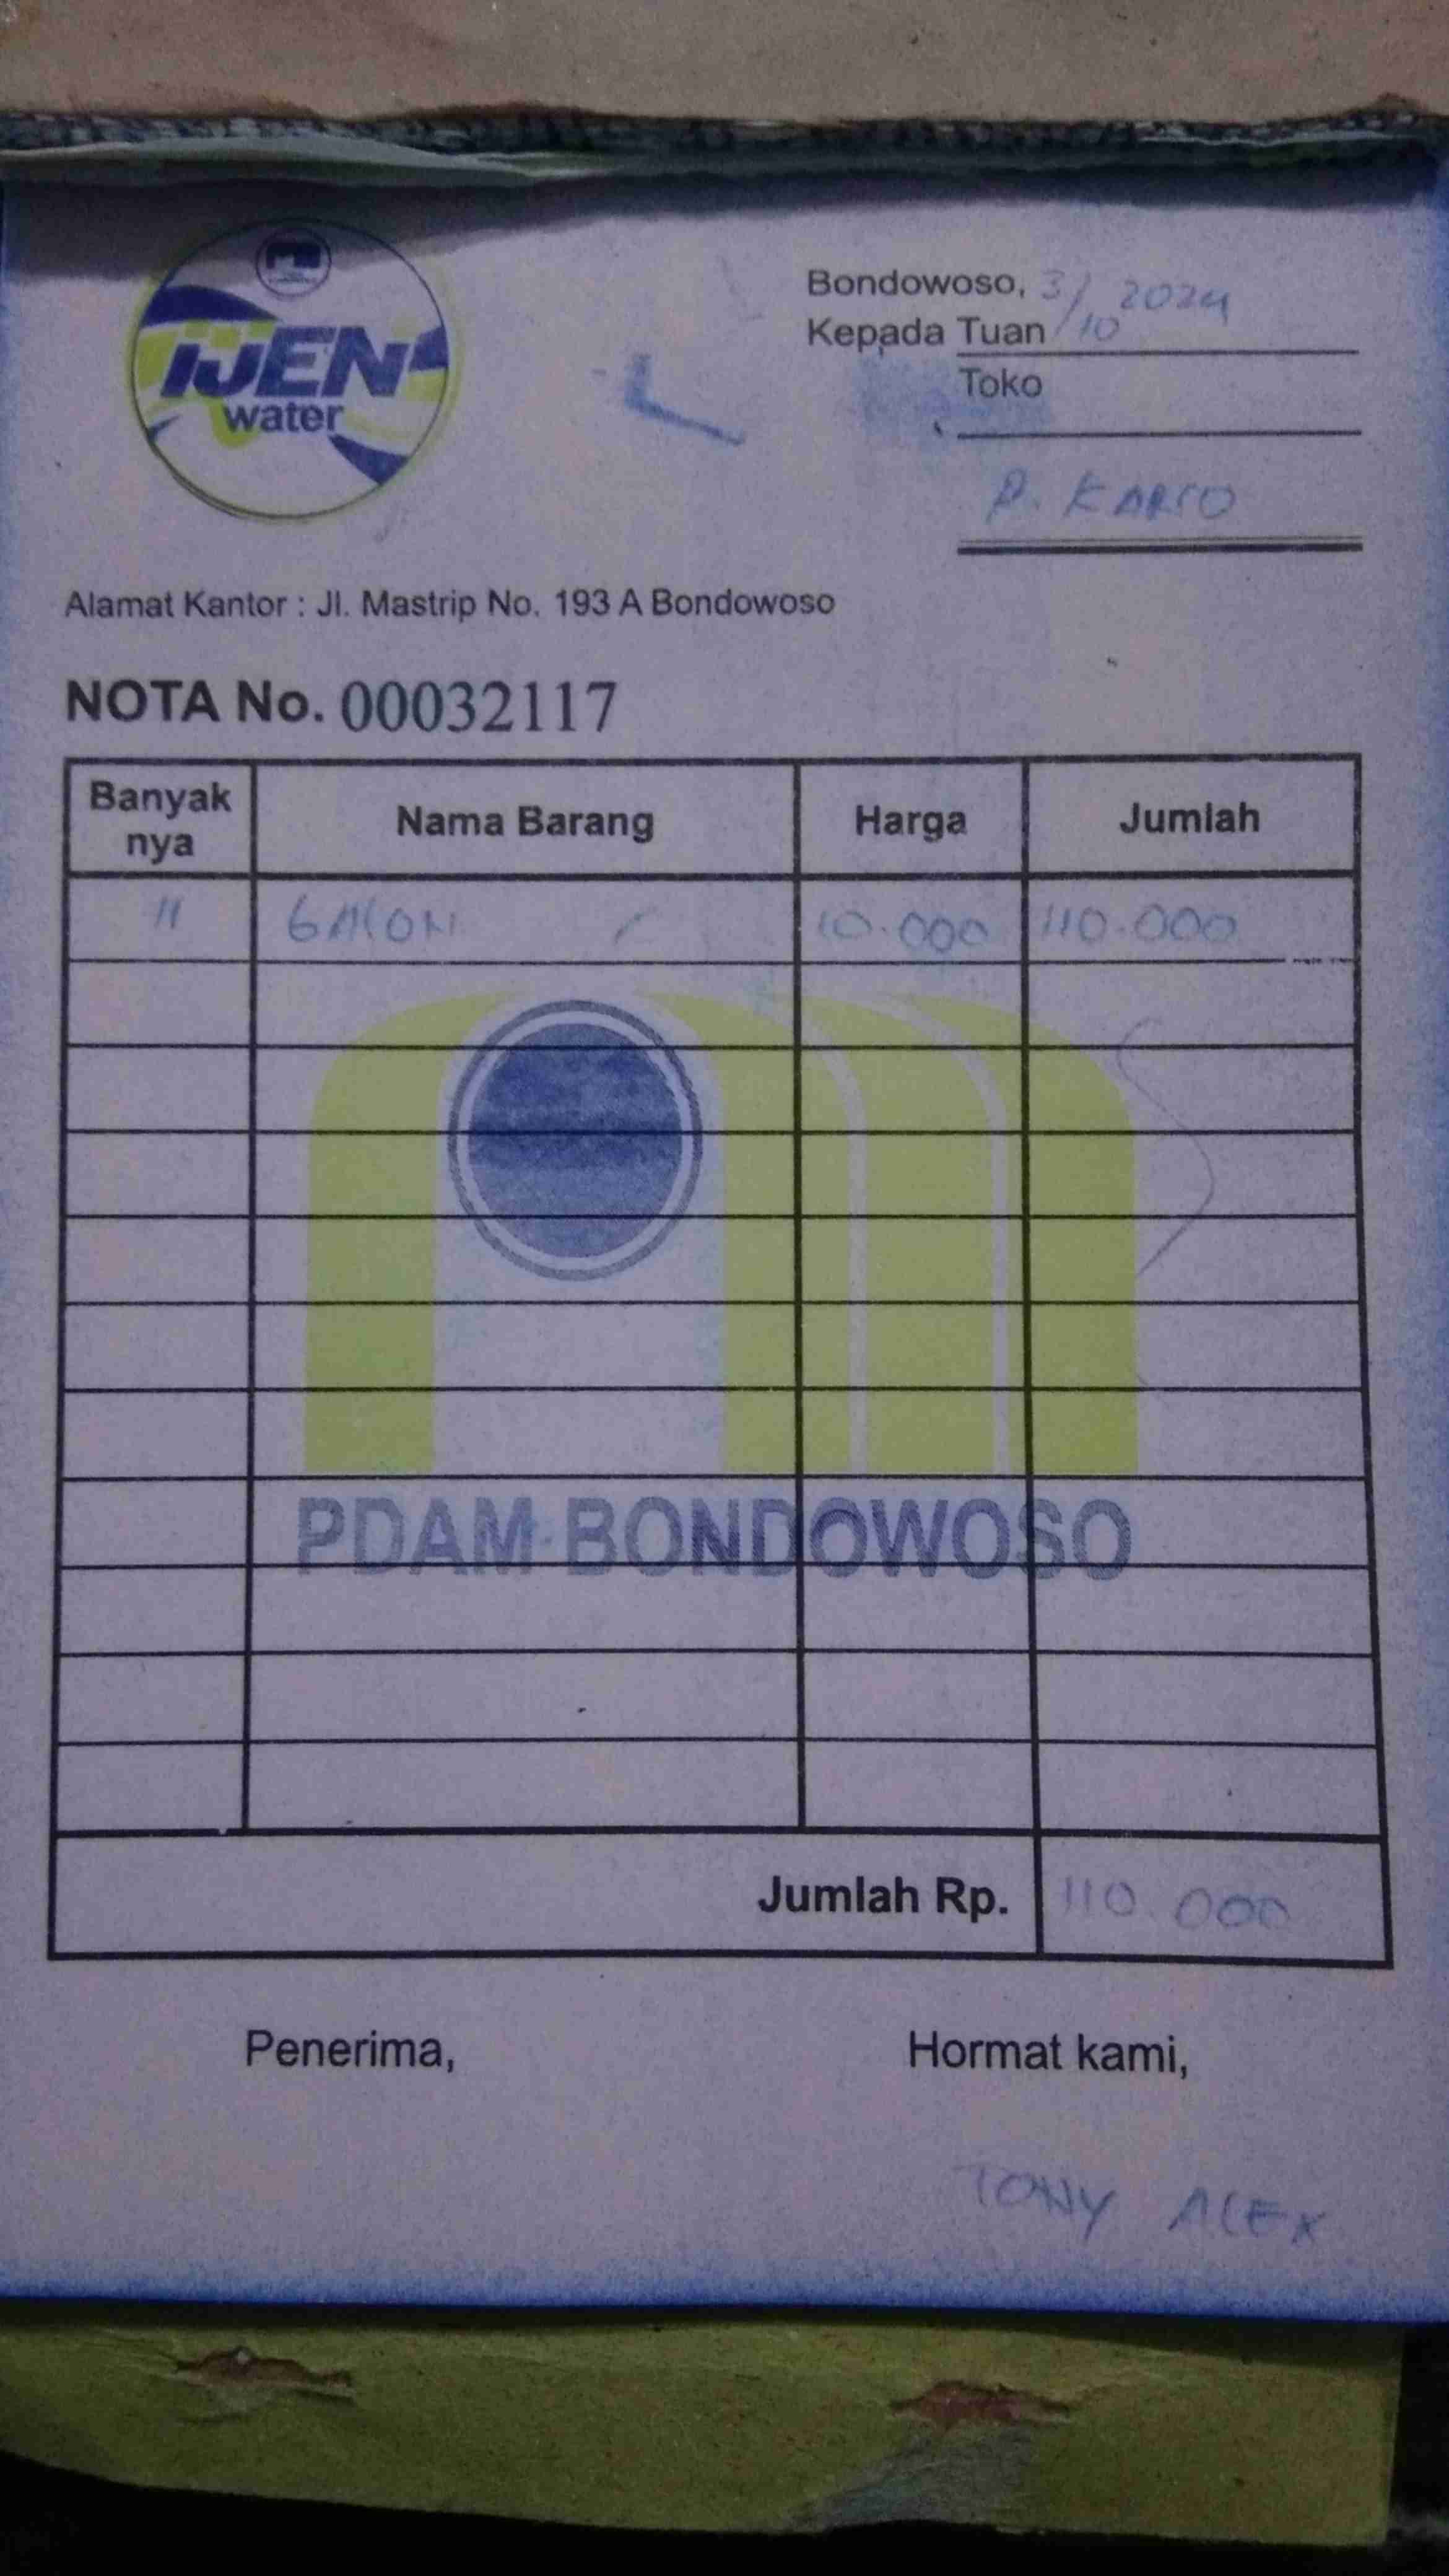 IJEN
water
Bondowoso, 3/10 2024
Kepada Tuan
Toko
P. KARTO
Alamat Kantor : Jl. Mastrip No. 193 A Bondowoso
NOTA No. 00032117
Banyak nya Nama Barang Harga Jumlah
11 GALON 10.000 110.000
PDAM BONDOWOSO
Jumlah Rp. 110.000
Penerima, Hormat kami,
TONY ALEX